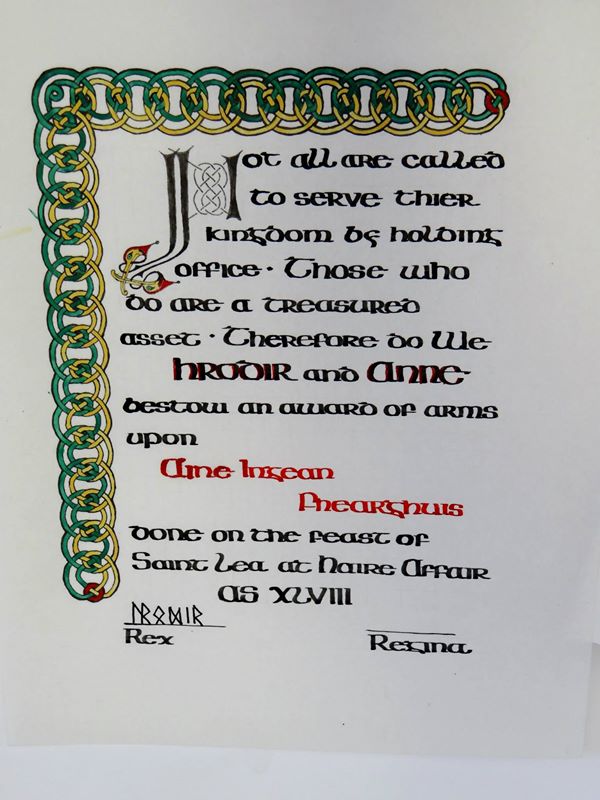 Not all are called
to serve thier
kingdom by holding
office · Those who
do are a treasured
asset · Therefore do We
HRODIR and ANNE
bestow an award of arms
upon
Aine Ingean
Fhearghuis
done on the feast of
Saint Lea at Haire Affair
AS XLVIII
ᚺᚱᛟᛞᛁᚱ
Rex
Regina